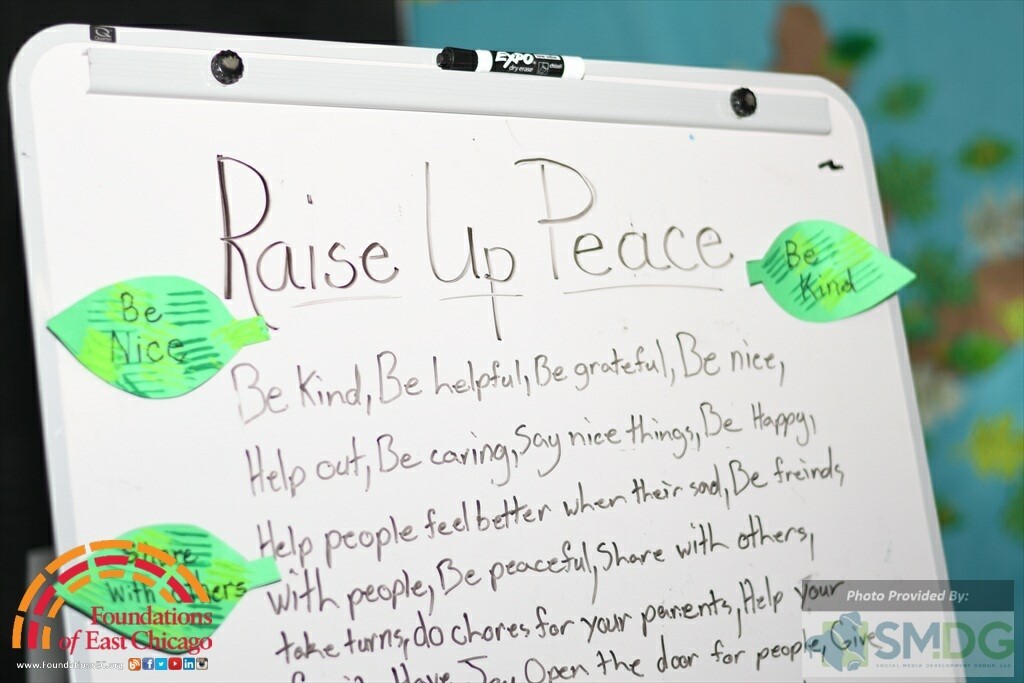 EXPO
dry erase
Raise Up Peace
Be
Kind
Be
Nice
Be Kind, Be helpful, Be grateful, Be nice,
Help out, Be caring, Say nice things, Be Happy,
Help people feel better when their sad, Be freinds
with people, Be peaceful, Share with others,
take turns, do chores for your parents, Help your
Have Joy Open the door for people, Give
Share
With others
Foundations
of East Chicago
www.FoundationsEC.org
Photo Provided By:
SMDG
SOCIAL MEDIA DEVELOPMENT GROUP, LLC